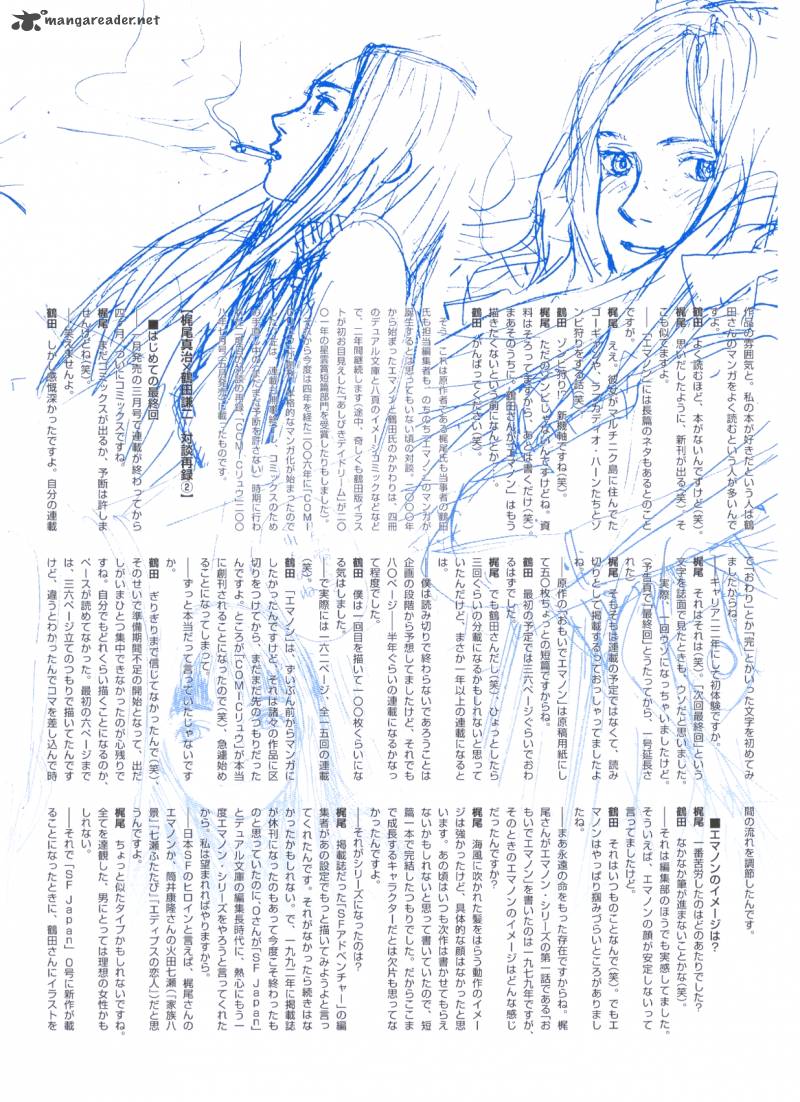 mangareader.net
作品の雰囲気と、私の本が好きだという人は鶴
田さんのマンガをよく読むという人が多いんで
すよ。
鶴田 よく読むほど、本がないんですけど(笑)。
梶尾 思いだしたように、新刊が出る(笑)。そ
こも似てますよ。
——「エマノン」には長篇のネタもあるとのこと
ですが。
梶尾 ええ。彼女がマルチニク島に住んでた
ゴーギャンや、ラフカディオ・ハーンたちとゾ
ンビ狩りをする話(笑)。
鶴田 ゾンビ狩り!? 新機軸ですね(笑)。
梶尾 ただのゾンビじゃないんですけどね。資
料はそろってますから、あとは書くだけ(笑)。
まあそのうちに。鶴田さんが「エマノン」はもう
描きたくないという前になんとか……。
鶴田 がんばってください(笑)。
そう、これは原作者である梶尾氏も当事者の鶴田
氏も担当編集者も、のちのち「エマノン」のマンガが
誕生するとは思ってもいない頃の対談。二〇〇〇年
から始まったエマノンと鶴田氏のかかわりは、四冊
のデュアル文庫と八頁のイメージコミックなどなど
で、二年間継続します(途中、奇しくも鶴田版イラス
トが初お目見えした「あしびきデイドリーム」が二〇
〇一年の星雲賞短篇部門を受賞したりもしました)。
【梶尾真治×鶴田謙二 対談再録②】
■はじめての最終回
——二月発売の三月号で連載が終わってから
四ヶ月、ついにコミックスですね。
梶尾 まだコミックスが出るか、予断は許しま
せんけどね(笑)。
——笑えませんよ。
鶴田 しかし感慨深かったですよ。自分の連載
で「おわり」とか「完」とかいった文字を初めてみ
ましたからね。
——キャリア二二年にして初体験ですか。
梶尾 それはそれは(笑)。「次回最終回」という
文字を誌面で見たときも、ウソだと思いました。
——実際、一回ウソになっちゃいましたけど。
(予告頁で「最終回」とうたってから、一号延長さ
れた)
梶尾 そもそもは連載の予定ではなくて、読み
切りとして掲載するっておっしゃってましたよ
ね。
——原作の「おもいでエマノン」は原稿用紙にし
て五〇枚ちょっとの短篇ですからね。
鶴田 最初の予定では三六ページぐらいでおわ
るはずでした。
梶尾 でも鶴田さんだし(笑)、ひょっとしたら
三回ぐらいの分載になるかもしれないと思って
いたんだけど、まさか一年以上の連載になると
は。
——僕は読み切りで終わらないであろうことは
企画の段階から予想してましたけど、それでも
八〇ページ——半年ぐらいの連載になるかなっ
て程度でした。
鶴田 僕は一回目を描いて一〇〇枚くらいにな
る気はしました。
——で実際には一六二ページ、全一五回の連載
(笑)。
鶴田 「エマノン」は、ずいぶん前からマンガに
したかったんですけど、それは諸々の作品に区
切りをつけてから、まだまだ先のつもりだった
んですよ。ところが「COMICリュウ」が本当
に創刊されることになったので(笑)、急遽始め
ることになってしまって。
——ずっと本当だって言っていたじゃないです
か。
鶴田 ぎりぎりまで信じてなかったんで(笑)、
そのせいで準備期間不足の開始となって、出だ
しがいまひとつ集中できなかったのが心残りで
すね。自分でもどれくらい描くことになるのか、
ペースが読めてなかった。最初の六ページまで
は、三六ページ立てのつもりで描いてたんです
けど、違うとわかったんでコマを差し込んで時
間の流れを調節したんです。
■エマノンのイメージは?
梶尾 一番苦労したのはどのあたりでした?
鶴田 なかなか筆が進まないことかな(笑)。
——それは編集部のほうでも実感してました。
そういえば、エマノンの顔が安定しないって
言ってましたけど。
鶴田 それはいつものことなんで(笑)。でもエ
マノンはやっぱり掴みづらいところがありまし
たね。
——まあ永遠の命をもった存在ですからね。梶
尾さんがエマノン・シリーズの第一話である「お
もいでエマノン」を書いたのは一九七九年ですが、
そのときのエマノンのイメージはどんな感じ
だったんですか?
梶尾 海風に吹かれた髪をはらう動作のイメー
ジは強かったけど、具体的な顔はなかったと思
います。あの頃はいつも次作は書かせてもらえ
ないかもしれないと思って書いていたので、短
篇一本で完結したつもりでした。だからここま
で成長するキャラクターだとは欠片も思ってな
かったんですよ。
——それがシリーズになったのは?
梶尾 掲載誌だった「SFアドベンチャー」の編
集者があの設定でもっと描いてみようよと言っ
てくれたんです。それがなかったら続きはな
かったかもしれない。で、一九九二年に掲載誌
が休刊になったのもあって今度こそ終わったも
のと思っていたのに、Oさんが「SF Japan」
とデュアル文庫の編集長時代に、熱心にもう一
度エマノン・シリーズをやろうと言ってくれた
から。私は望まれればやりますから。
——日本SFのヒロインと言えば、梶尾さんの
エマノンか、筒井康隆さんの火田七瀬(「家族八
景」「七瀬ふたたび」「エディプスの恋人」)だと思
うんですよ。
梶尾 ちょっと似たタイプかもしれないですね。
全てを達観した、男にとっては理想の女性かも
しれない。
——それで「SF Japan」0号に新作が載
ることになったときに、鶴田さんにイラストを